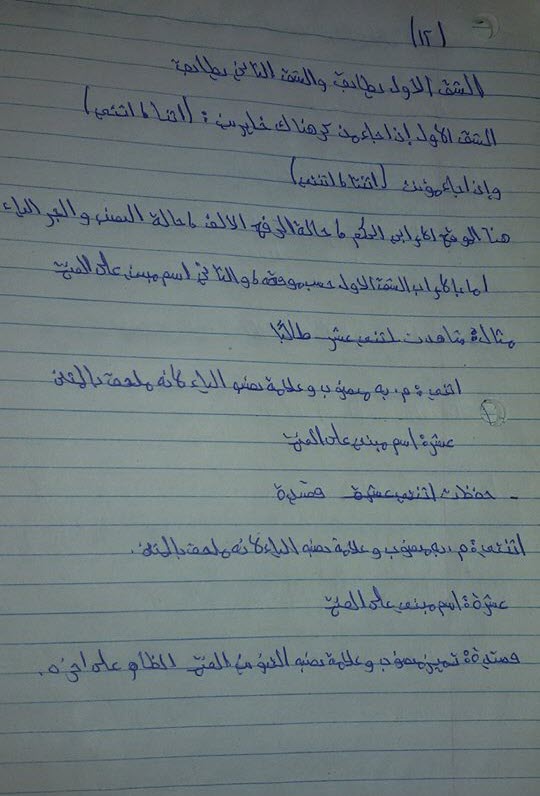 (١٢)
الشق الاول يطابق والشق الثاني يطابق
الشق الأول إذا جاء مذكر هناك خيارين : (اثنا، اثني)
وإذا جاء مؤنث (اثنتا، اثنتي)
هنا الموقع الاعرابي الحكم، حالة الرفع الالف، حالة النصب والجر الياء
اما بالاعراب الشق الاول حسب موقعه، والثاني اسم مبني على الفتح
مثال: شاهدت اثني عشر طالبًا
اثني: م. به منصوب وعلامة نصبه الياء لانه ملحق بالمثنى
عشر: اسم مبني على الفتح
- حفظت اثنتي عشرة قصيدة
اثنتي: م. به منصوب وعلامة نصبه الياء لانه ملحق بالمثنى.
عشرة: اسم مبني على الفتح
قصيدة: تمييز منصوب وعلامة نصبه تنوين الفتح الظاهر على اخره.